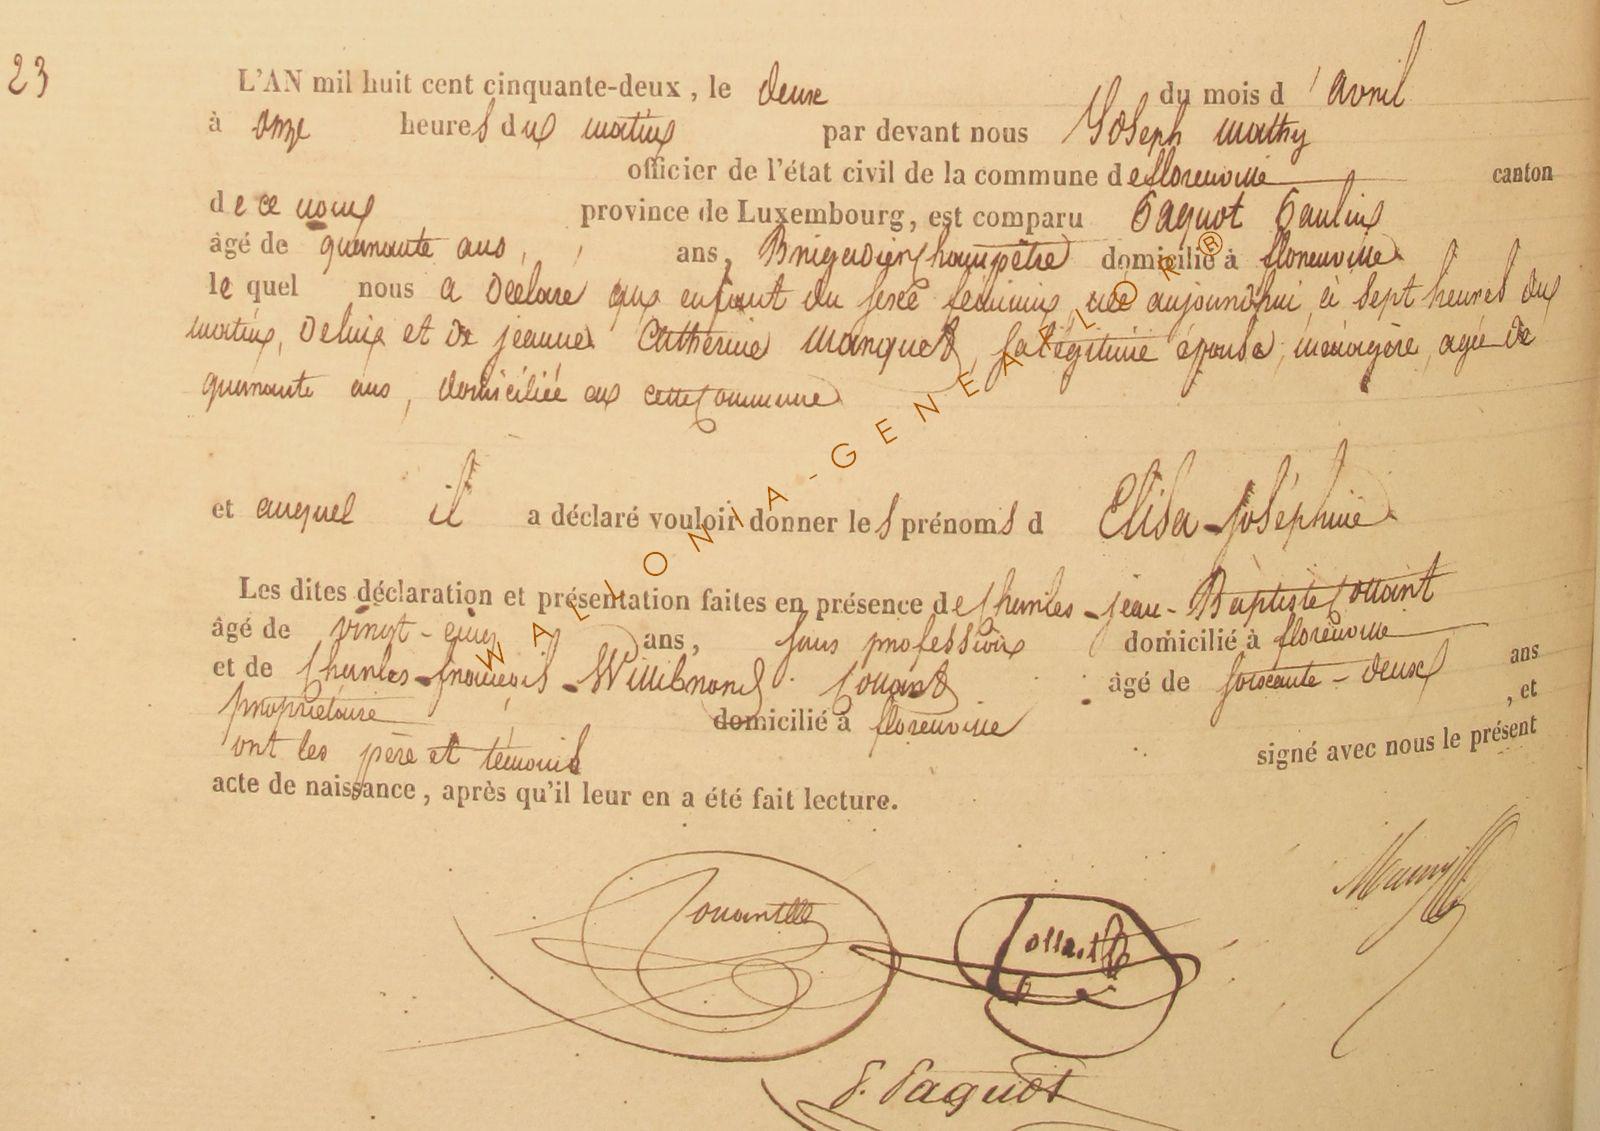 23
L'AN mil huit cent cinquante-deux, le deux du mois d'avril
à onze heures du matin par devant nous Joseph Mathy
officier de l'état civil de la commune de florenville canton
de ce nom province de Luxembourg, est comparu Paquot Paulin
âgé de quarante ans, ans, Brigadier Champêtre domicilié à florenville
lequel nous a déclaré que enfant du sexe féminin née aujourd'hui, à sept heures du
matin, de lui et de jeanne Catherine Manquet, sa légitime épouse, ménagère, agée de
quarante ans, domiciliée en cette Commune
et auquel il a déclaré vouloir donner les prénoms d Elisa-Joséphine
Les dites déclaration et présentation faites en présence de Charles-jean-Baptiste Collart
âgé de vingt-cinq ans, sans profession domicilié à florenville
et de Charles-françois-Willibrord Collart âgé de soixante-deux ans
propriétaire domicilié à florenville, et
ont les père et témoins signé avec nous le présent
acte de naissance, après qu'il leur en a été fait lecture.
Collart
P. Paquot
WALLONIA-GENEA FLOR®